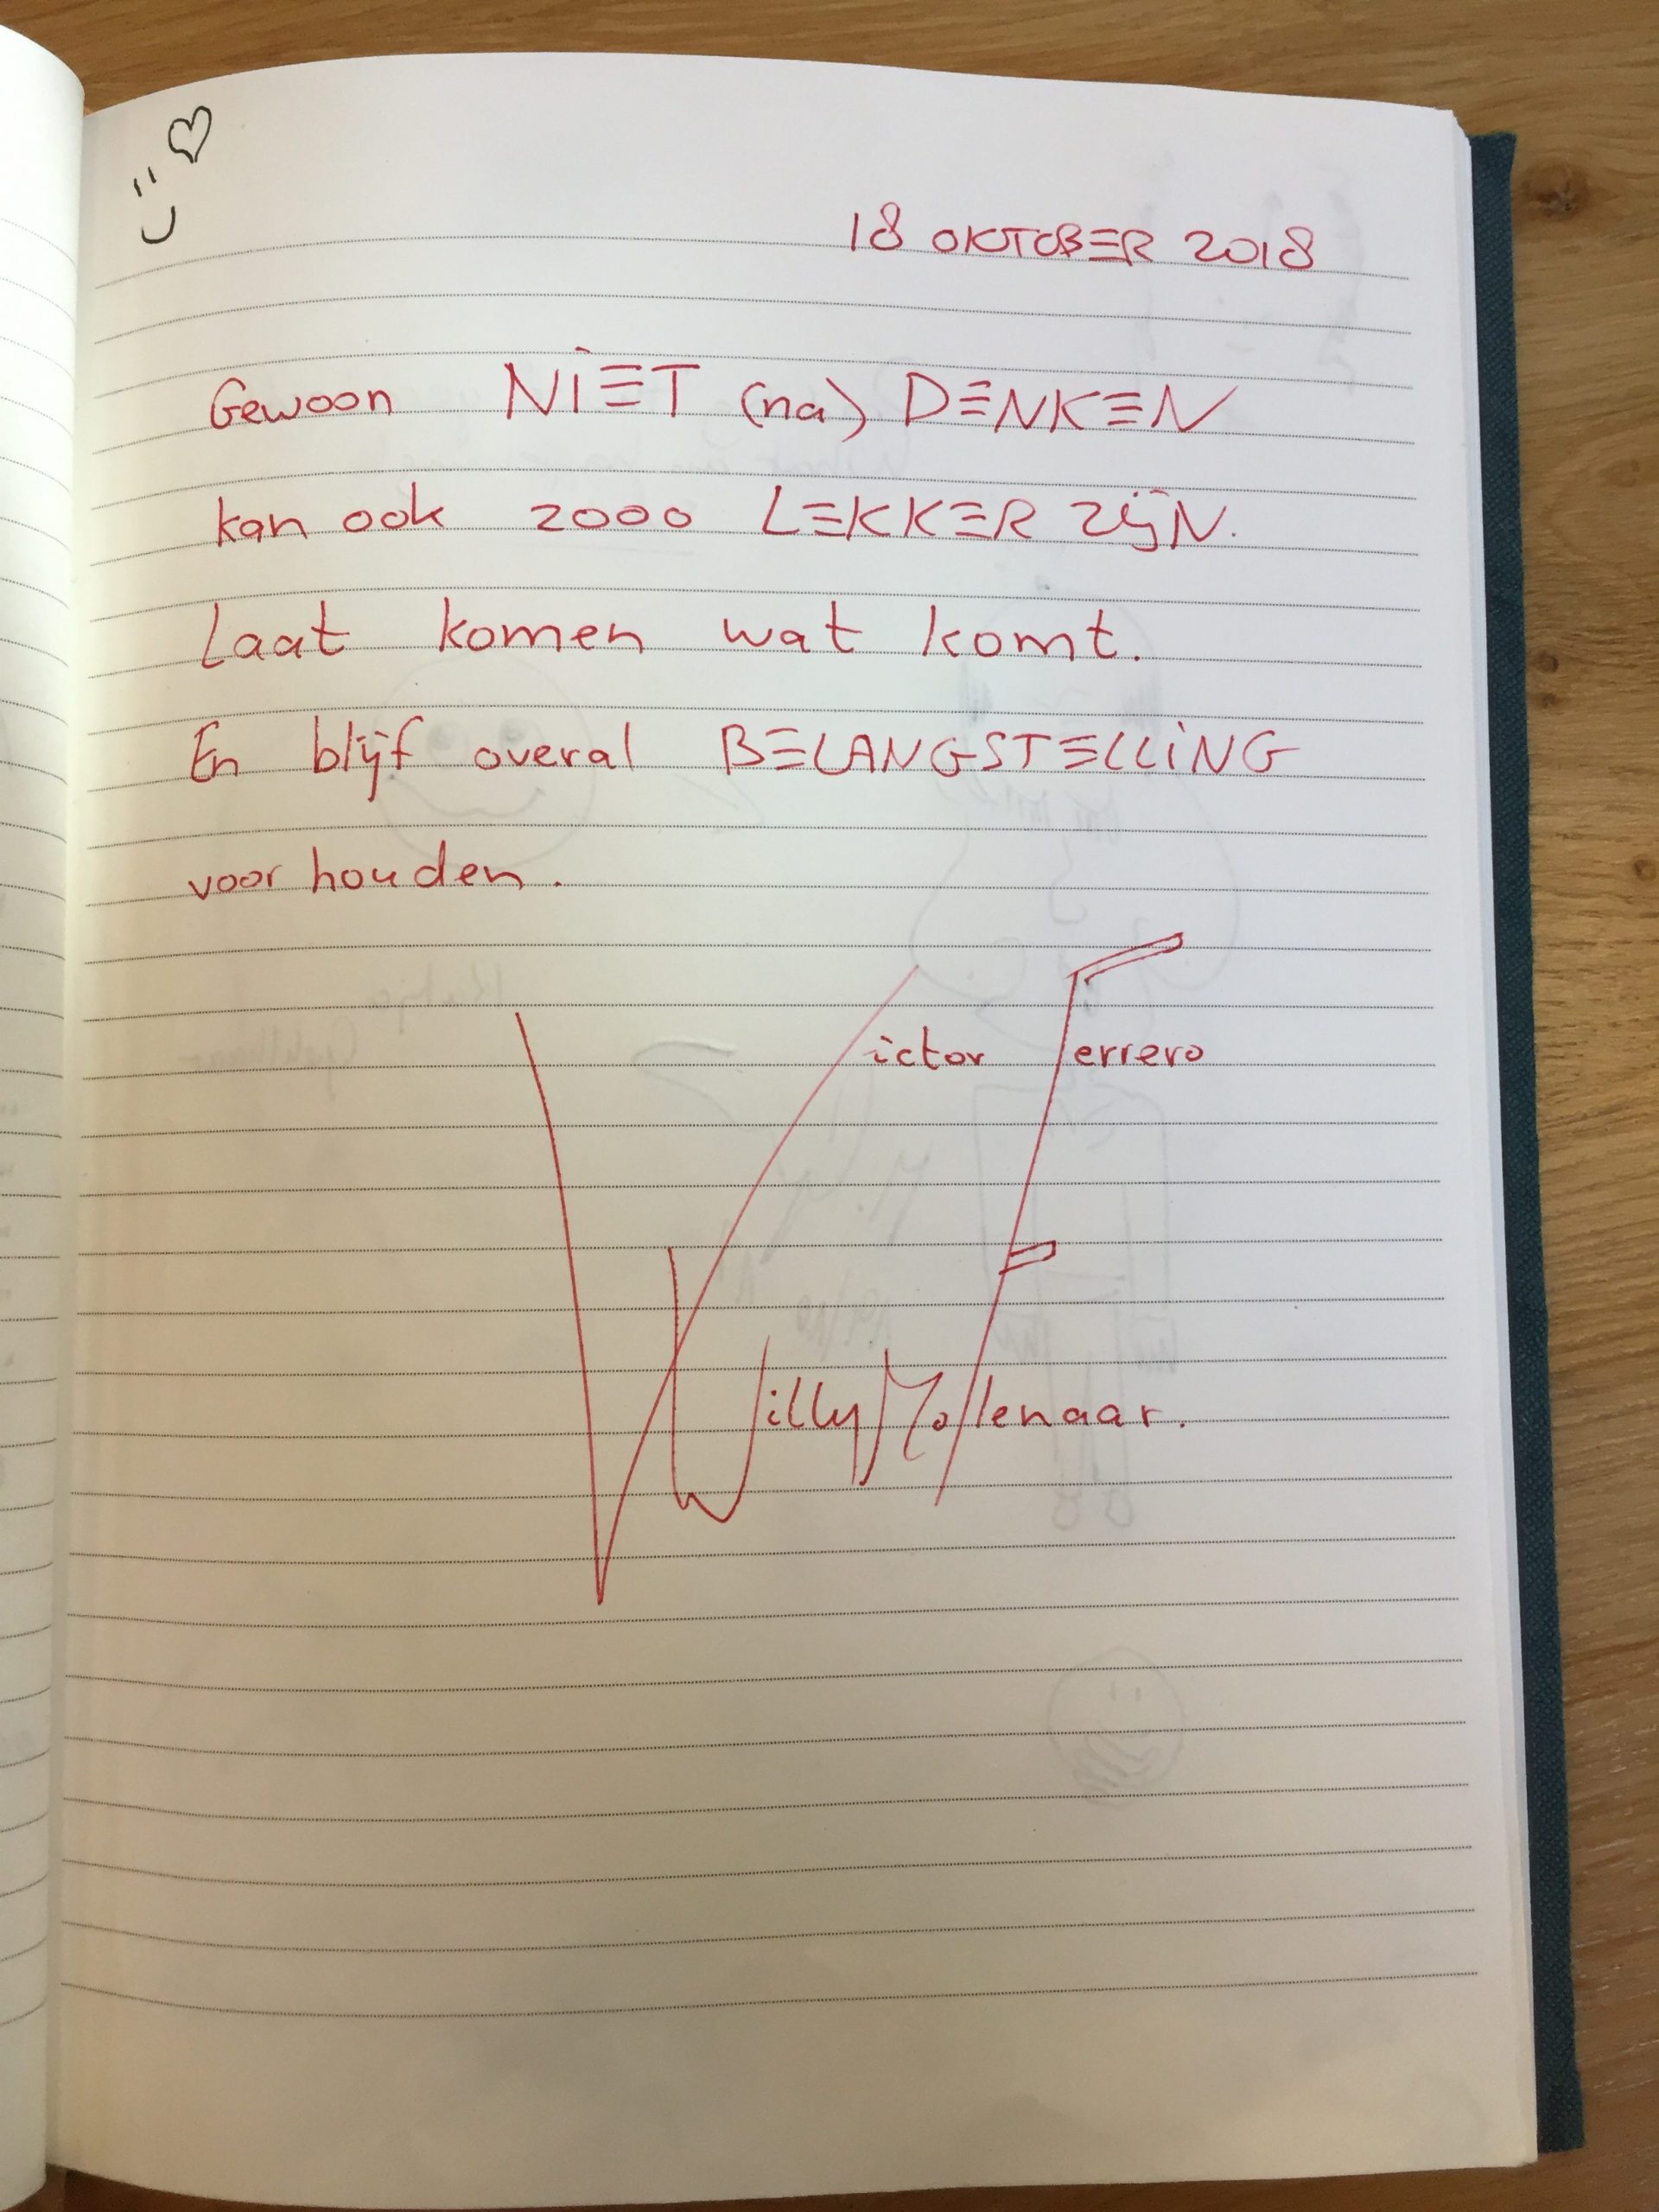 18 OKTOBER 2018
Gewoon NIET (na) DENKEN
kan ook zooo LEKKER ZIJN.
Laat komen wat komt.
En blijf overal BELANGSTELLING
voor houden.
Victor Ferrero
Willy Mollenaar.